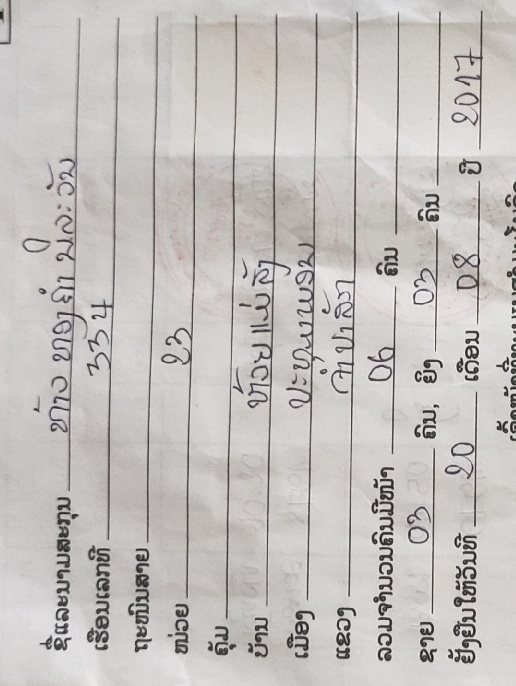 ຊື່ແລະນາມສະກຸນ ທ້າວ ທອງຄຳ ພິລະວັນ
ເຮືອນເລກທີ 334
ຖະໜົນສາຍ
ໜ່ວຍ 23
ຄຸ້ມ
ບ້ານ ຫ້ວຍແມ່ສັງ
ເມືອງ ປະທຸມພອນ
ແຂວງ ຈຳປາສັກ
ລວມຈຳນວນຄົນມີໜ້າ 06 ຄົນ
ຊາຍ 03 ຄົນ, ຍິງ 03 ຄົນ
ຢັ້ງຢືນໃຫ້ວັນທີ 20 ເດືອນ 08 ປີ 2017